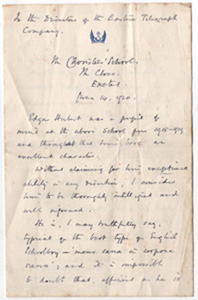 To the Directors of the Eastern Telegraph
Company.
The Choristers' School.
The Close.
Exeter
June 14, 1920.
Edgar Hubert was a pupil of
mine at the above School from 1915-1919
and throughout that time bore an
excellent character.
Without claiming for him exceptional
ability in any direction, I consider
him to be thoroughly intelligent and
well informed.
He is, I may truthfully say,
typical of the best type of English
Schoolboy - mens sana in corpore
sano; and it is impossible
to doubt that, efficient as he is